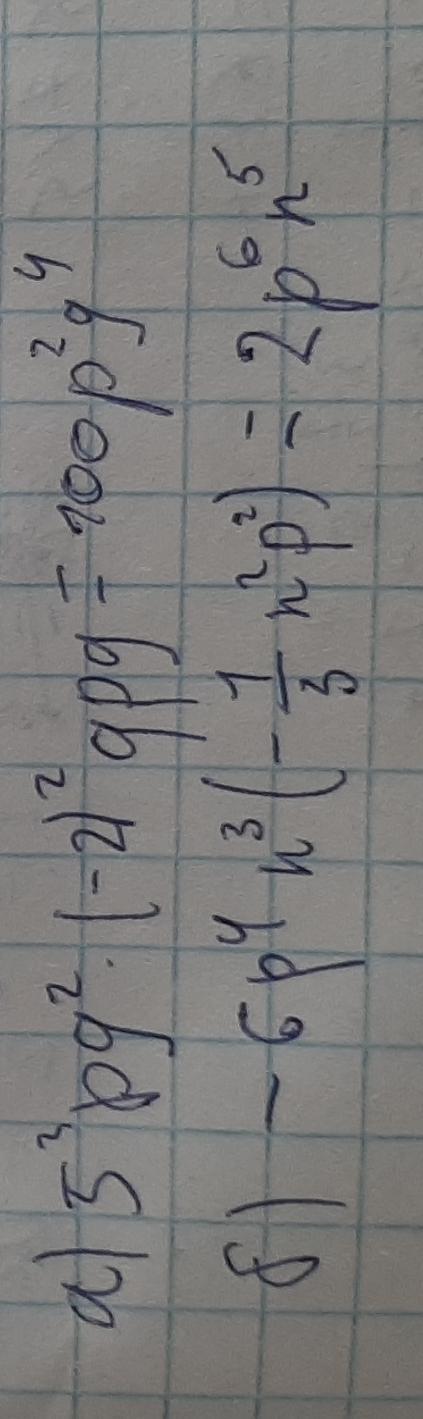 а) 5³pg² · (-2)² gpg = 100p²g⁴
б) - 6p⁴n³(-1/3 n²p²) = 2p⁶n⁵